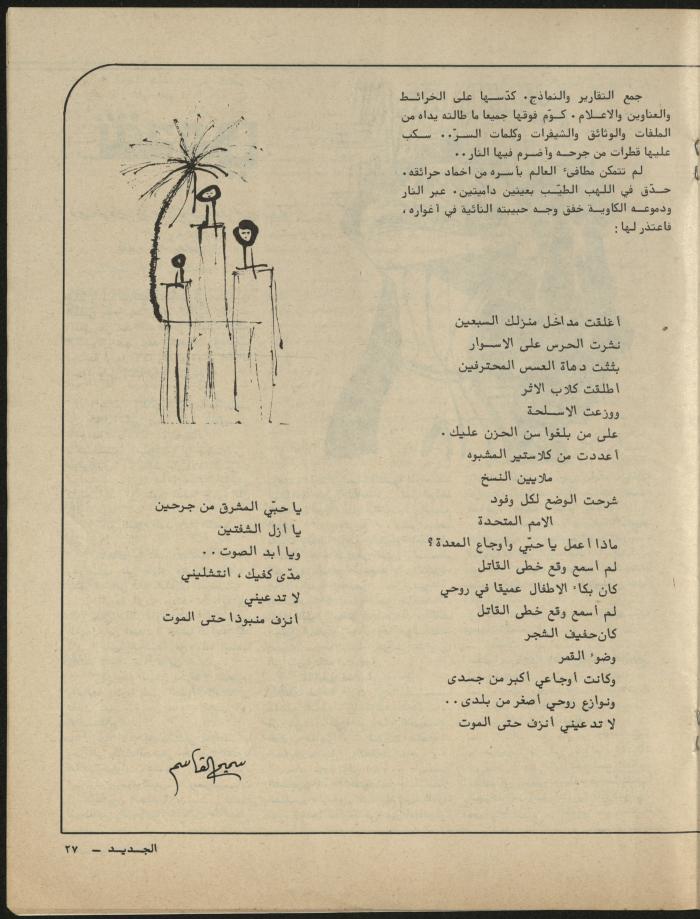 جمع التقارير والنماذج. كدّسها على الخرائط
والعناوين والاعلام. كوّم فوقها جميعا ما طالته يداه من
الملفات والوثائق والشيفرات وكلمات السرّ.. سكب
عليها قطرات من جرحه وأضرم فيها النار..
لم تتمكن مطافىء العالم بأسره من اخماد حرائقه.
حدّق في اللهب الطيّب بعينين داميتين. عبر النار
ودموعه الكاوية خفق وجه حبيبته النائية في أغواره،
فاعتذر لها:
أغلقت مداخل منزلك السبعين
نشرت الحرس على الاسوار
بثثت دهاة العسس المحترفين
اطلقت كلاب الاثر
ووزعت الاسلحة
على من بلغوا سن الحزن عليك.
أعددت من كلاستير المشبوه
ملايين النسخ
شرحت الوضع لكل وفود
الامم المتحدة
ماذا اعمل يا حبّي وأوجاع المعدة؟
لم أسمع وقع خطى القاتل
كان بكاء الاطفال عميقا في روحي
لم أسمع وقع خطى القاتل
كان حفيف الشجر
وضوء القمر
وكانت أوجاعي أكبر من جسدى
ونوازع روحي أصغر من بلدى..
لا تدعيني أنزف حتى الموت
يا حبّي المشرق من جرحين
يا أزل الشفتين
ويا أبد الصوت..
مدّى كفيك، انتشليني
لا تدعيني
انزف منبوذا حتى الموت
سميح القاسم
الجديد – ٢٧